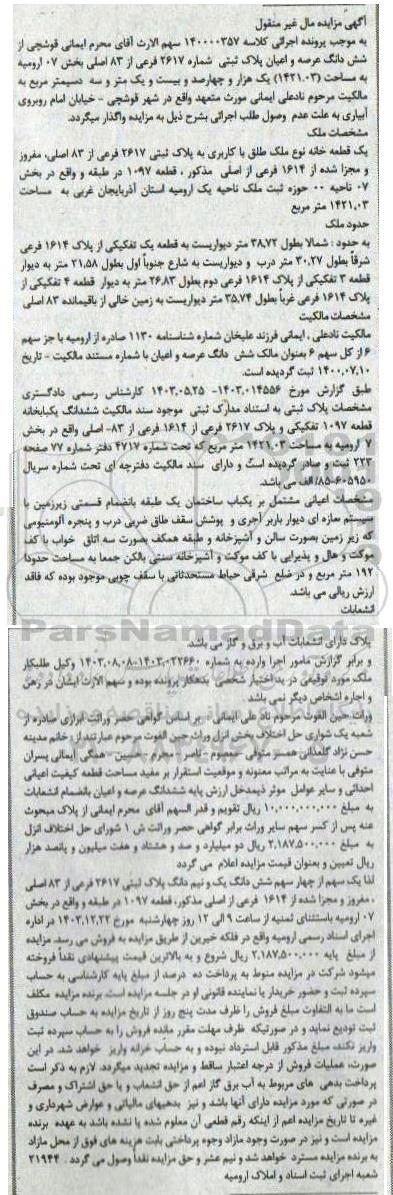 آگهی مزایده مال غیر منقول
به موجب پرونده اجرائی کلاسه ۱۴۰۰۰۰۳۵۷ سهم الارث آقای محرم ایمانی قوشچی از
شش دانگ عرصه و اعیان پلاک ثبتی شماره ۲۶۱۷ فرعی از ۸۳ اصلی بخش ۰۷ ارومیه
به مساحت (۱۴۲۱.۰۳) یک هزار و چهارصد و بیست و یک متر و سه دسیمتر مربع به
مالکیت مرحوم نادعلی ایمانی مورث متعهد واقع در شهر قوشچی - خیابان امام روبروی
آبیاری به علت عدم وصول طلب اجرائی بشرح ذیل به مزایده واگذار میگردد.
مشخصات ملک
یک قطعه خانه نوع ملک طلق با کاربری به پلاک ثبتی ۲۶۱۷ فرعی از ۸۳ اصلی، مفروز
و مجزا شده از ۱۶۱۴ فرعی از اصلی مذکور ، قطعه ۱۰۹۷ در طبقه و واقع در بخش
۰۷ ناحیه ۰۰ حوزه ثبت ملک ناحیه یک ارومیه استان آذربایجان غربی به مساحت
۱۴۲۱.۰۳ متر مربع
حدود ملک
به حدود : شمالا بطول ۳۸.۷۲ متر دیواریست به قطعه یک تفکیکی از پلاک ۱۶۱۴ فرعی
شرقاً بطول ۳۰.۲۷ متر درب و دیواریست به شارع جنوباً اول بطول ۲۱.۵۸ متر به دیوار
قطعه ۳ تفکیکی از پلاک ۱۶۱۴ فرعی دوم بطول ۲۶.۸۳ متر به دیوار قطعه ۴ تفکیکی از
پلاک ۱۶۱۴ فرعی غرباً بطول ۳۵.۷۴ متر دیواریست به زمین خالی از باقیمانده ۸۳ اصلی
مشخصات مالکیت
مالکیت نادعلی ، ایمانی فرزند علیخان شماره شناسنامه ۱۱۳۰ صادره از ارومیه با جز سهم
۶ از کل سهم ۶ بعنوان مالک شش دانگ عرصه و اعیان با شماره مستند مالکیت - تاریخ
۱۴۰۰.۰۷.۱۰ ثبت گردیده است.
طبق گزارش مورخ ۱۴۰۳.۰۱۴۵۵۶-۱۴۰۳.۰۵.۲۵ کارشناس رسمی دادگستری
مشخصات پلاک ثبتی به استناد مدارک ثبتی موجود سند مالکیت ششدانگ یکبابخانه
قطعه ۱۰۹۷ تفکیکی و پلاک ۲۶۱۷ فرعی از ۱۶۱۴ فرعی از ۸۳- اصلی واقع در بخش
۷ ارومیه به مساحت ۱۴۲۱.۰۳ متر مربع که تحت شماره ۴۷۱۷ دفتر شماره ۷۷ صفحه
۲۲۳ ثبت و صادر گردیده است و دارای سند مالکیت دفترچه ای تحت شماره سریال
۸۵/۶۰۵۹۵۰ الف می باشد.
مشخصات اعیانی مشتمل بر یکباب ساختمان یک طبقه بانضمام قسمتی زیرزمین با
سیستم سازه ای دیوار باربر آجری و پوشش سقف طاق ضربی درب و پنجره آلومنیومی
که زیر زمین بصورت سالن و آشپزخانه و طبقه همکف بصورت سه اتاق خواب با کف
موکت و هال و پذیرایی با کف موکت و آشپزخانه سنتی بالکن جمعا به مساحت حدودا
۱۹۲ متر مربع و در ضلع شرقی حیاط مستحدثاتی با سقف چوبی موجود بوده که فاقد
ارزش ریالی می باشد.
انشعابات
پلاک دارای انشعابات آب و برق و گاز می باشد.
و برابر گزارش مامور اجرا وارده به شماره ۱۴۰۳.۰۲۲۶۶۰-۱۴۰۳.۰۸.۰۸ وکیل طلبکار
ملک مورد توقیفی در ید اختیار شخصی بدهکار پرونده بوده و سهم الارث ایشان در رهن
و اجاره اشخاص دیگر نمی باشد.
وراث حین الفوت مرحوم ناد علی ایمانی . بر اساس گواهی حصر وراثت ابرازی صادره از
شعبه یک شورای حل اختلاف بخش انزل وراث حین الفوت مرحوم عبارتند از: خانم مدینه
حسن نژاد گلعذانی همسر متوفی - معصوم - ناصر - محرم - حسین - همگی ایمانی پسران
متوفی با عنایت به مراتب معنونه و موقعیت استقرار بر مفید مساحت قطعه کیفیت اعیانی
احداثی و سایر عوامل موثر ذیمدخل ارزش پایه ششدانگ عرصه و اعیان بانضمام انشعابات
به مبلغ ۱۰.۰۰۰.۰۰۰.۰۰۰ ریال تقویم و قدر السهم آقای محرم ایمانی از پلاک مبحوث
عنه پس از کسر سهم سایر وراث برابر گواهی حصر وراثت ش ۱ شورای حل اختلاف انزل
به مبلغ ۲.۱۸۷.۵۰۰.۰۰۰ ریال دو میلیارد و صد و هشتاد و هفت میلیون و پانصد هزار
ریال تعیین و بعنوان قیمت مزایده اعلام می گردد
لذا یک سهم از چهار سهم شش دانگ یک و نیم دانگ پلاک ثبتی ۲۶۱۷ فرعی از ۸۳ اصلی
، مفروز و مجزا شده از ۱۶۱۴ فرعی از اصلی مذکور، قطعه ۱۰۹۷ در طبقه و واقع در بخش
۰۷ ارومیه باستثنای ثمنیه از ساعت ۹ الی ۱۲ روز چهارشنبه مورخ ۱۴۰۳.۱۲.۲۲ در اداره
اجرای اسناد رسمی ارومیه واقع در فلکه خیرین از طریق مزایده به فروش می رسد. مزایده
از مبلغ پایه ۲.۱۸۷.۵۰۰.۰۰۰ ریال شروع و به بالاترین قیمت پیشنهادی نقداً فروخته
میشود شرکت در مزایده منوط به پرداخت ده درصد از مبلغ پایه کارشناسی به حساب
سپرده ثبت و حضور خریدار یا نماینده قانونی او در جلسه مزایده است. برنده مزایده مکلف
است ما به التفاوت مبلغ فروش را ظرف مدت پنج روز از تاریخ مزایده به حساب صندوق
ثبت تودیع نماید و در صورتیکه ظرف مهلت مقرر مانده فروش را به حساب سپرده ثبت
واریز نکند، مبلغ مذکور قابل استرداد نبوده و به حساب خزانه واریز خواهد شد. در این
صورت، عملیات فروش از درجه اعتبار ساقط و مزایده تجدید میگردد. لازم به ذکر است
پرداخت بدهی های مربوط به آب برق گاز اعم از حق انشعاب و یا حق اشتراک و مصرف
در صورتی که مورد مزایده دارای آنها باشد و نیز بدهیهای مالیاتی و عوارض شهرداری و
غیره تا تاریخ مزایده اعم از اینکه رقم قطعی آن معلوم شده یا نشده باشد به عهده برنده
مزایده است و نیز در صورت وجود مازاد وجوه پرداختی بابت هزینه های فوق از محل مازاد
به برنده مزایده مسترد خواهد شد و نیم عشر و حق مزایده نقداً وصول می گردد . ۲۱۹۴۴
شعبه اجرای ثبت اسناد و املاک ارومیه
ParsNamadData